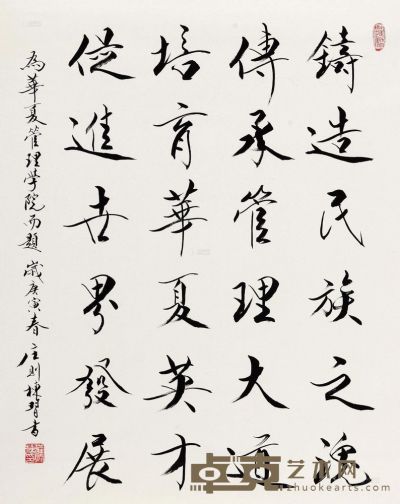 鑄造民族之魂
傳承管理大道
培育華夏英才
促進世界發展
為華夏管理學院而題 歲庚寅春 庄则棟習書
卓克艺术网
zhuokearts.com